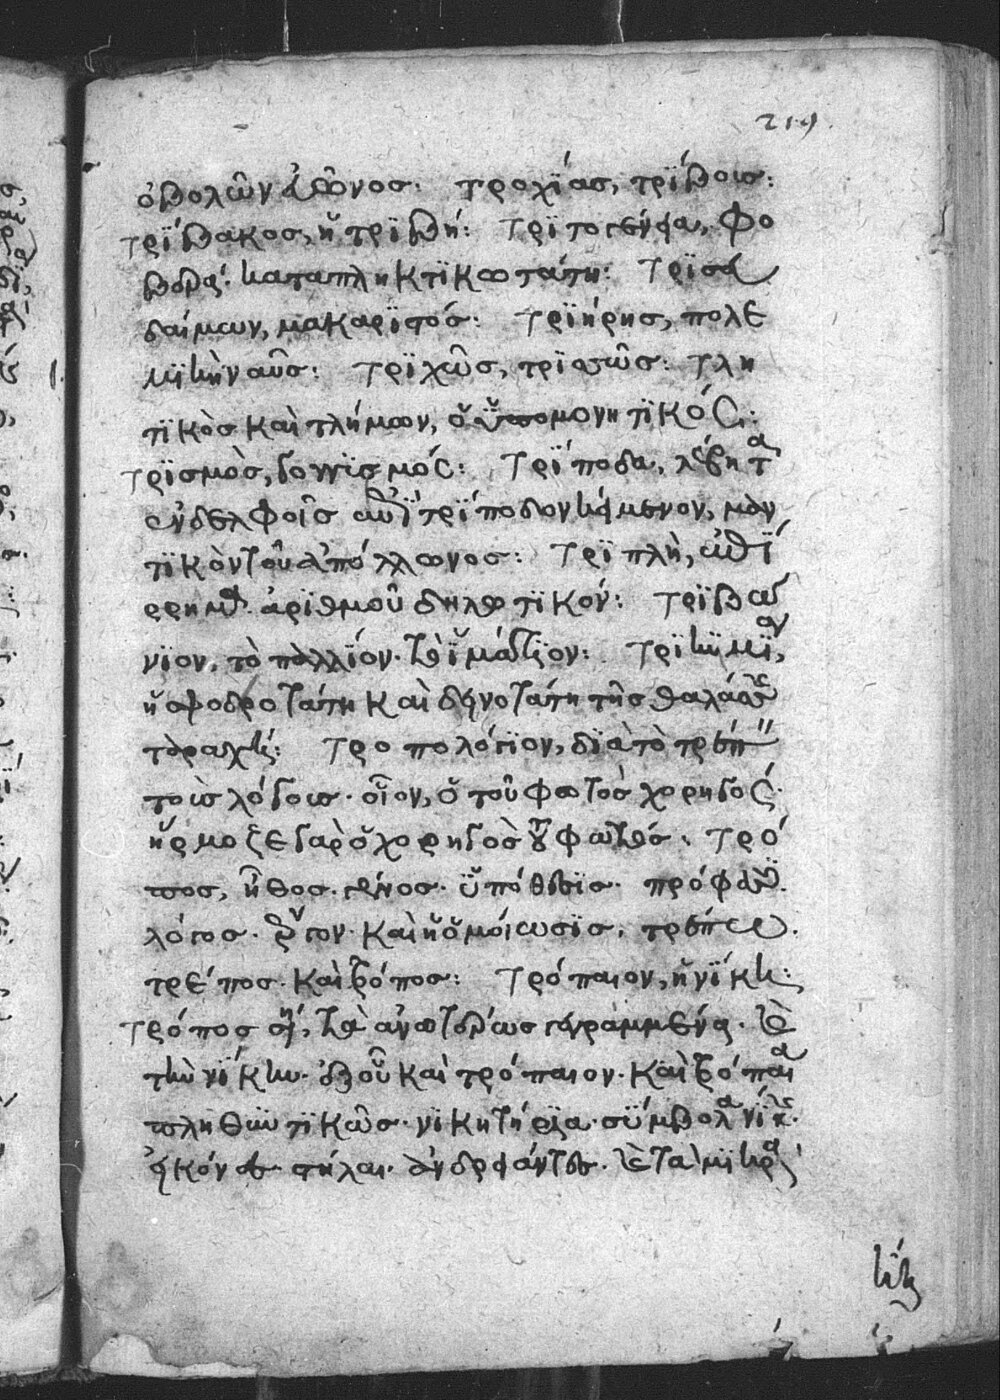 219
ὀβολῶν ἄξονος· τροχίας, τρίβοις:
τρίβακος, ἡ τριβή: τριτογένεια, φο
βερά· καταπληκτικωτάτη: τρισά
δαίμων, μακαριστός: τριήρης, πολε
μικὴ ναῦς: τριχῶς, τρισσῶς: τλη
τικὸς καὶ τλήμων, ὁ ὑπομονητικός:
τρισμὸς, γογγισμός: τρίποδα, λέβητα
ἐν δελφοῖς ἐπὶ τρίποδον κείμενον, μαν
τικὸν τοῦ ἀπόλλωνος: τριπλὴ, ἐπί
ρρημα ἀριθμοῦ δηλωτικόν: τριβώ
νιον, τὸ παλλίον· τὸ ἱμάτιον: τρικυμίαν,
ἡ σφοδροτάτη καὶ δεινοτάτη τῆς θαλάσσης
ταραχή: τροπολόγιον, διὰ τὸ τρέπῃ
τοῖς λόγοις· οἷον, ὁ τοῦ φωτὸς χορηγός·
ἥρμοζε γὰρ ὁ χορηγὸς τοῦ φωτός· τρό
πος, ἦθος· γένος· ὑπόθεσις· πρόφασις·
λόγος· ζήτον· καὶ ἡ ὁμοίωσις· τρέπω·
τρέπος· καὶ τρόπος: τρόπαιον, ἡ νίκη:
τρόπος, τὰ ἀνωτέρως γεγραμμένα· καὶ
τὴν νίκην· ἐξ οὗ καὶ τρόπαιον· καὶ τρόπαια
πληθυντικῶς· νικητήρια· σύμβολα νίκης·
εἰκόνες· στήλαι· ἀνδριάντες· καὶ τὰ μικρὰ